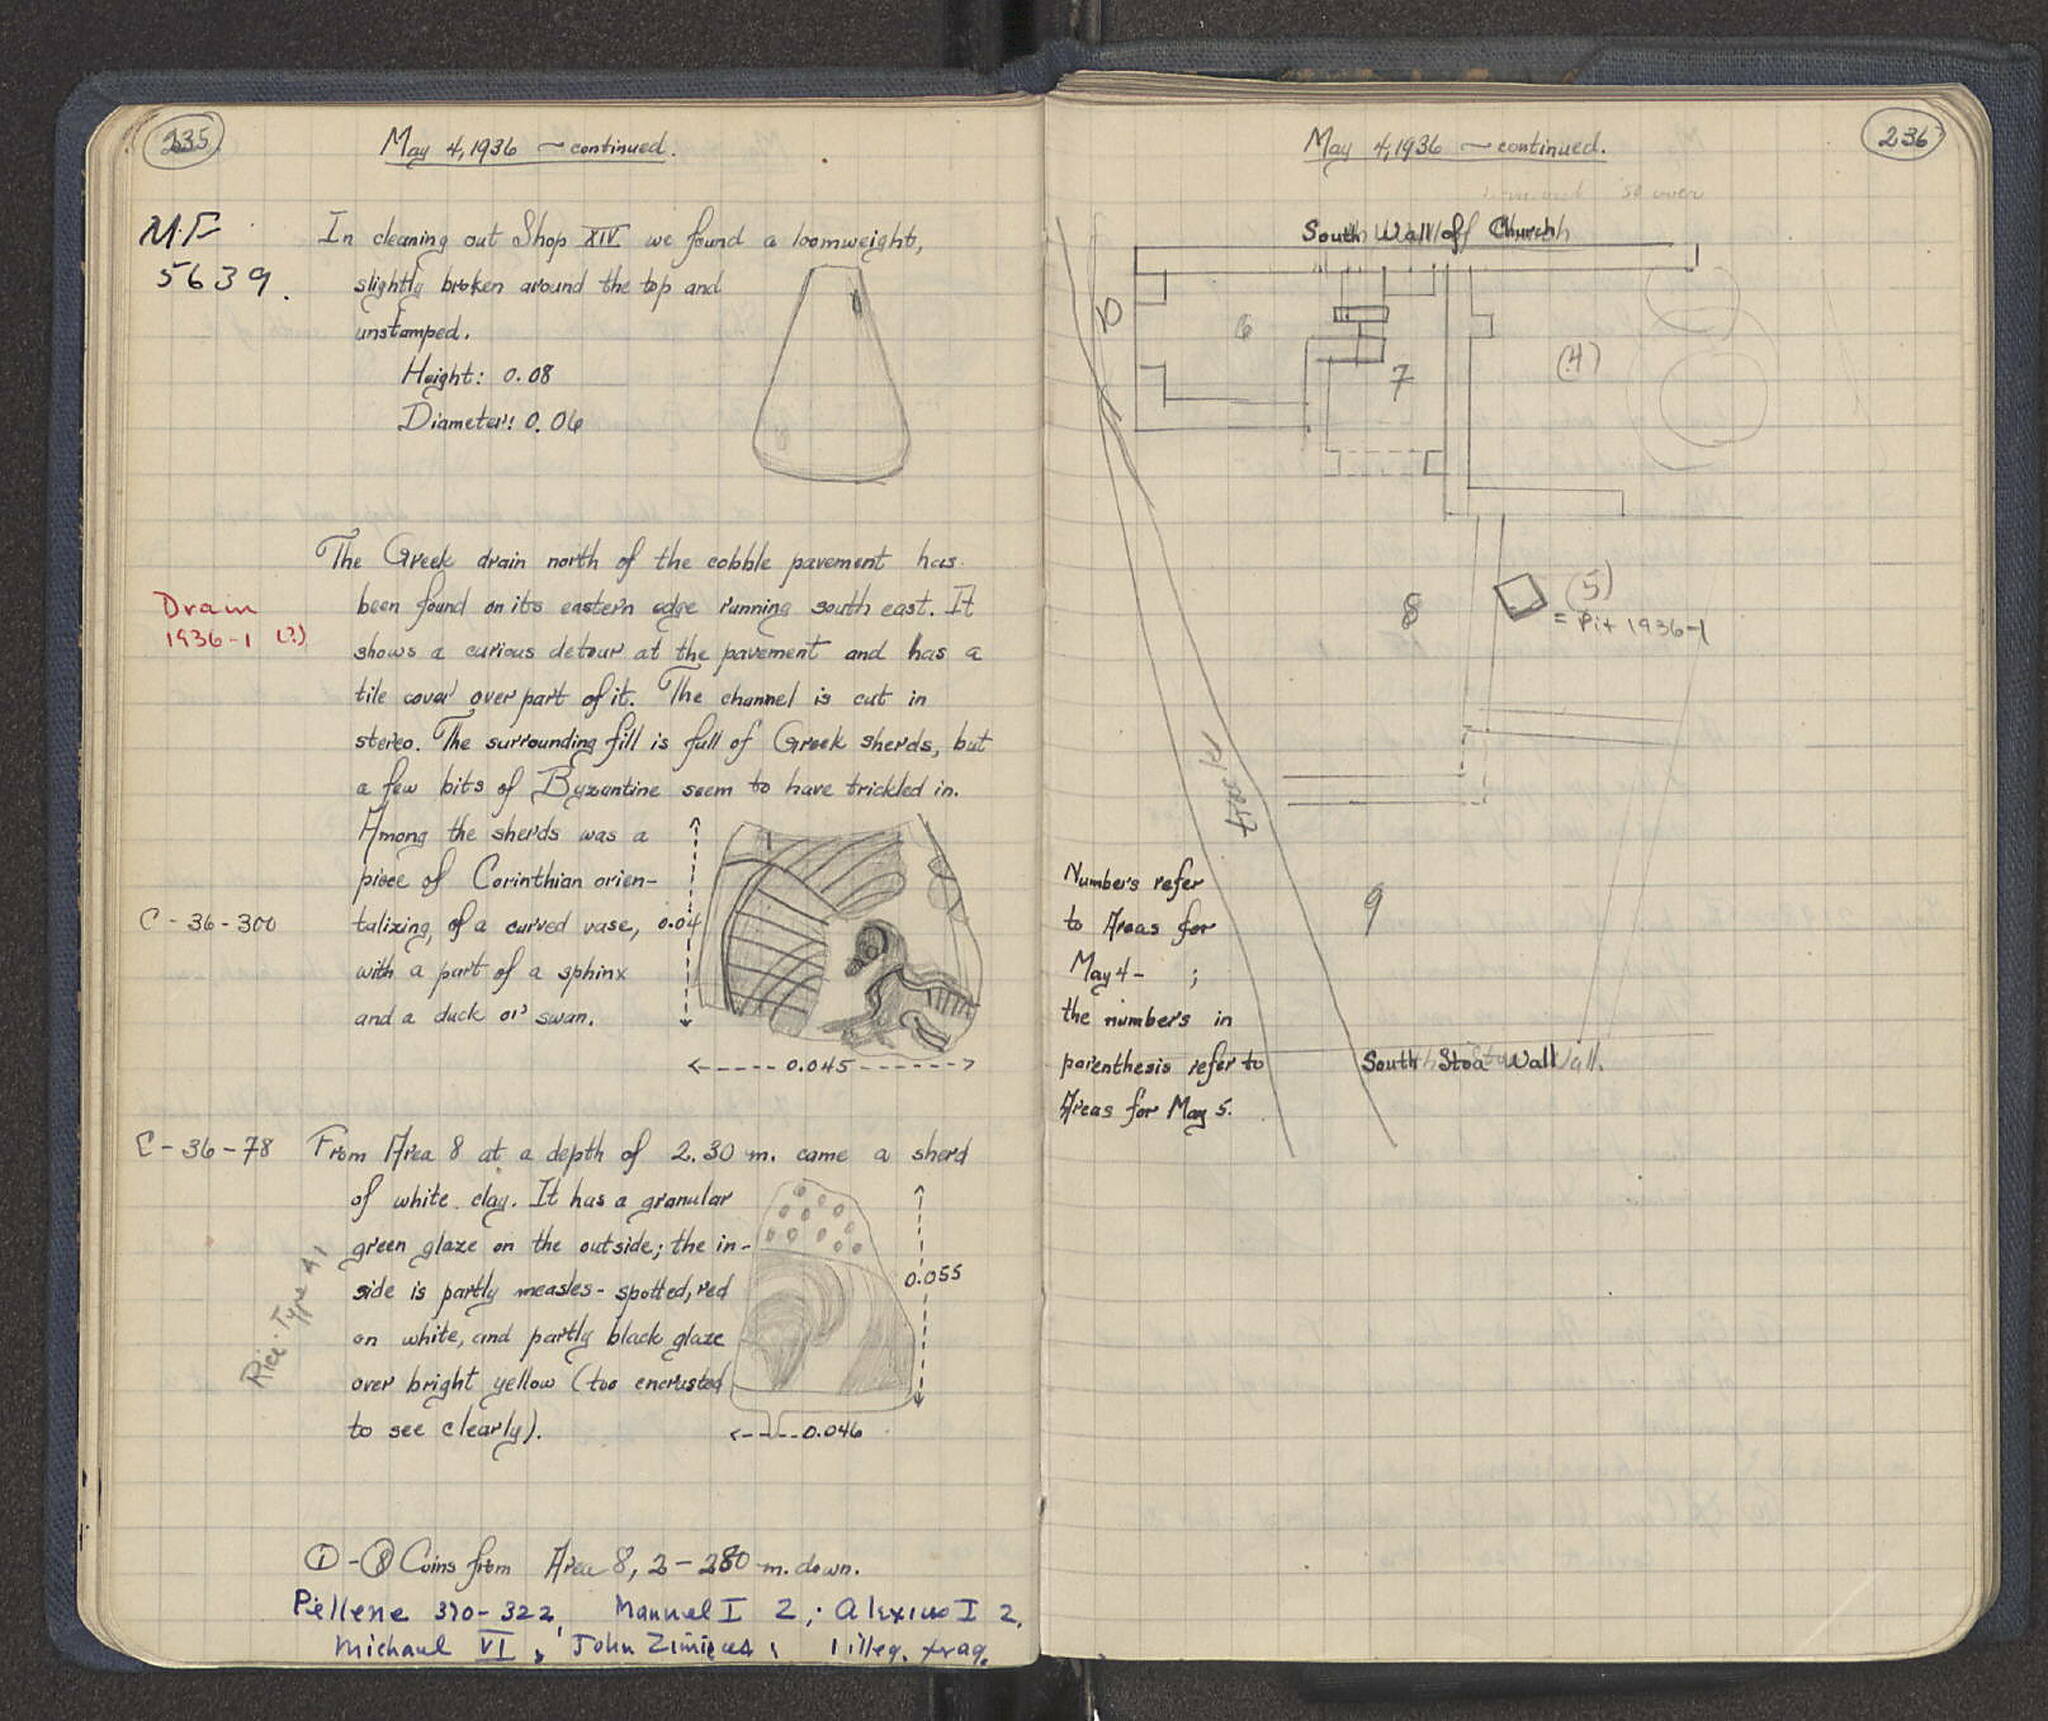 235
May 4, 1936 — continued.
M.F.
5639.
In cleaning out Shop XIV we found a loomweight,
slightly broken around the top and
unstamped.
Height: 0.08
Diameter: 0.06
Drain
1936-1 (?)
The Greek drain north of the cobble pavement has
been found on its eastern edge running south east. It
shows a curious detour at the pavement and has a
tile cover over part of it. The channel is cut in
stereo. The surrounding fill is full of Greek sherds, but
a few bits of Byzantine seem to have trickled in.
Among the sherds was a
piece of Corinthian orien-
C-36-300
talizing, of a curved vase,
with a part of a sphinx
and a duck or swan.
0.04
0.045
C-36-78
From Area 8 at a depth of 2.30 m. came a sherd
of white clay. It has a granular
green glaze on the outside; the in-
side is partly measles-spotted, red
on white, and partly black glaze
over bright yellow (too encrusted
to see clearly).
Rice. Type A1
0.055
0.046
①-⑧ Coins from Area 8, 2-280 m. down.
Pellene 370-322, Manuel I 2; Alexius I 2,
Michael VI, John Zimisces, 1 illeg. frag.
236
May 4, 1936 — continued.
South Wall of Church
10
6
7
(4)
8
(5)
= Pit 1936-1
Area 12
9
Numbers refer
to Areas for
May 4- ;
the numbers in
parenthesis refer to
Areas for May 5.
South Stoa Wall